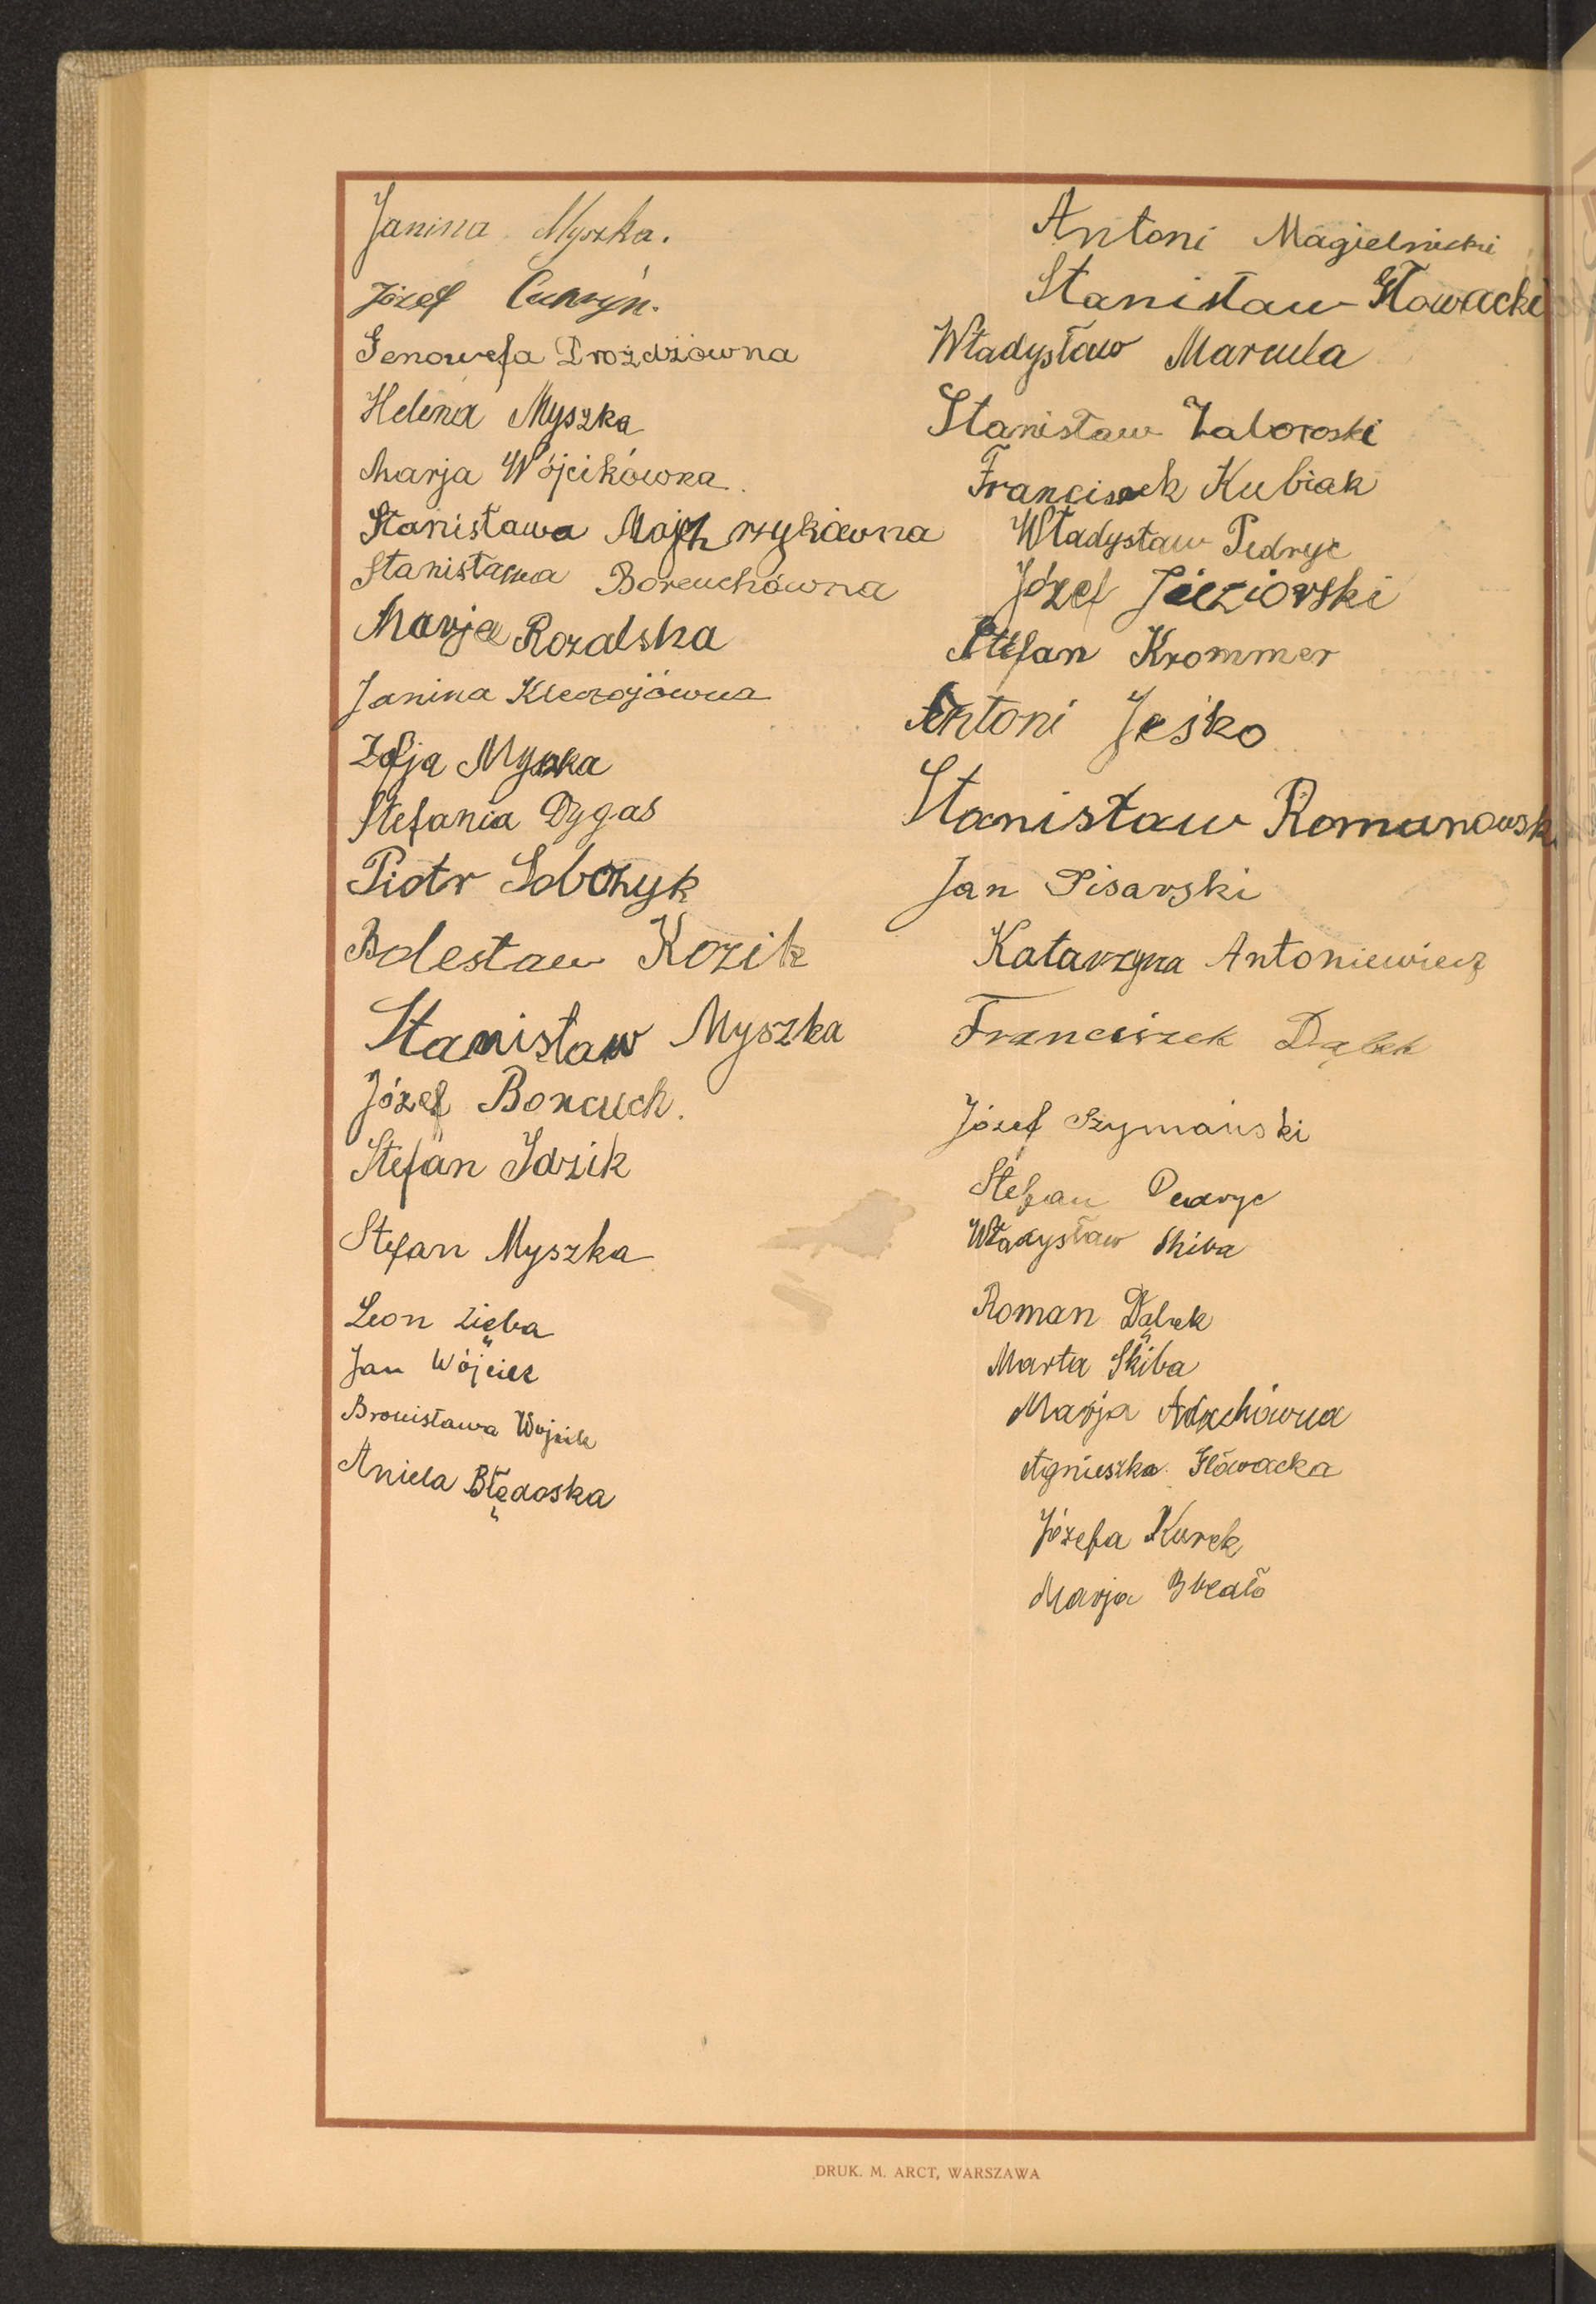 Janina Myszka.
Józef
Genowefa Drożdżówna
Helena Myszka
Marja Wójcikówna.
Stanisława Majchrzykówna
Stanisława Borcuchówna
Marja Rozalska
Janina
Zofja Myszka
Stefania Dygas
Piotr Sobczyk
Bolesław Kozik
Stanisław Myszka
Józef Borcuch.
Stefan Idzik
Stefan Myszka
Leon Zięba
Jan Wójcik
Bronisława Wójcik
Aniela Błędoska
Antoni Magielnicki
Stanisław Głowacki
Władysław Marcula
Stanisław Zaboroski
Franciszek Kubiak
Władysław Pedryc
Józef Jieziorski
Stefan Krommer
Antoni Jeśko
Stanisław Romanowski
Jan Pisarski
Katarzyna Antoniewicz
Franciszek Dąbek
Józef Szymański
Stefan Pedryc
Władysław Skiba
Roman Dąbek
Marta Skiba
Marja
Agnieszka Głowacka
Józefa Kurek
Marja
DRUK. M. ARCT, WARSZAWA